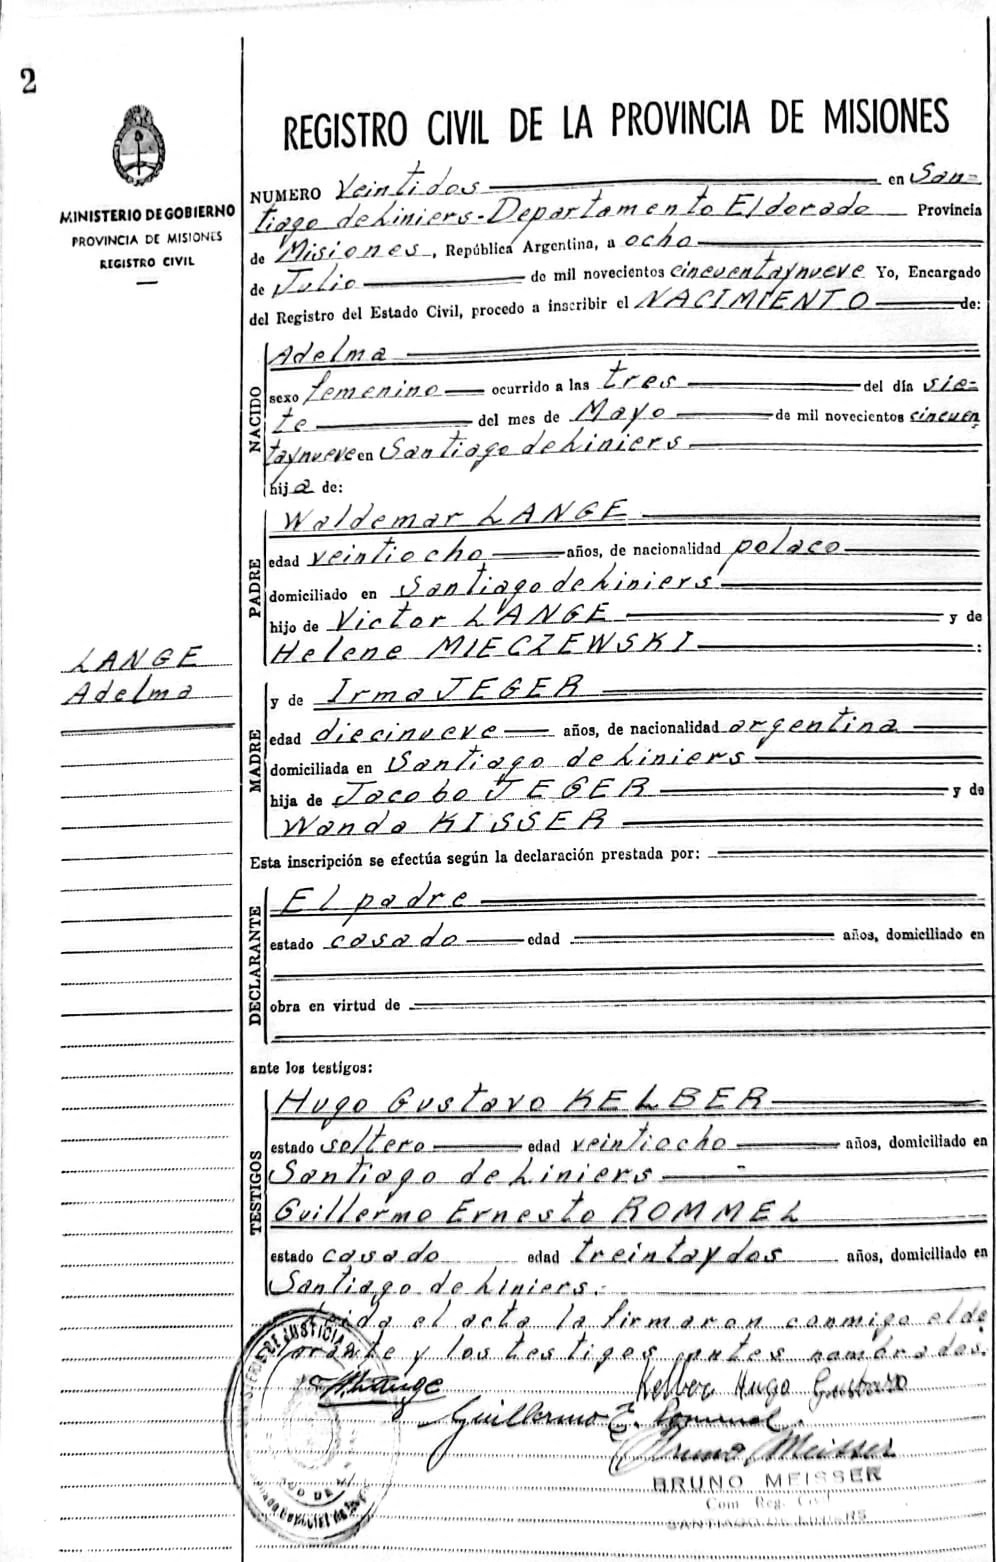 2
MINISTERIO DE GOBIERNO
PROVINCIA DE MISIONES
REGISTRO CIVIL
LANGE
Adelma
REGISTRO CIVIL DE LA PROVINCIA DE MISIONES
NUMERO Veintidos en San-
tiago de Liniers-Departamento Eldorado Provincia
de Misiones, República Argentina, a ocho
de Julio de mil novecientos cincuentaynueve Yo, Encargado
del Registro del Estado Civil, procedo a inscribir el NACIMIENTO de:
NACIDO
Adelma
sexo femenino ocurrido a las tres del día sie-
te del mes de Mayo de mil novecientos cincuen
taynueve en Santiago de Liniers
hija de:
PADRE
Waldemar LANGE
edad veintiocho años, de nacionalidad polaco
domiciliado en Santiago de Liniers
hijo de Victor LANGE y de
Helene MIECZEWSKI :
MADRE
y de Irma JEGER
edad diecinueve años, de nacionalidad argentina
domiciliada en Santiago de Liniers
hija de Jacobo JEGER y de
Wanda KISSER
Esta inscripción se efectúa según la declaración prestada por:
DECLARANTE
El padre
estado casado edad años, domiciliado en
obra en virtud de
ante los testigos:
TESTIGOS
Hugo Gustavo KELBER
estado soltero edad veintiocho años, domiciliado en
Santiago de Liniers -
Guillermo Ernesto ROMMEL
estado casado edad treintaydos años, domiciliado en
Santiago de Liniers.
Leida el acta la firmaron conmigo el de
clarante y los testigos antes nombrados.
JUSTICIA
Kelber Hugo Gustavo
Guillermo E. Rommel
Bruno Meisser
BRUNO MEISSER
Com Reg. Civil
SANTIAGO DE LINIERS